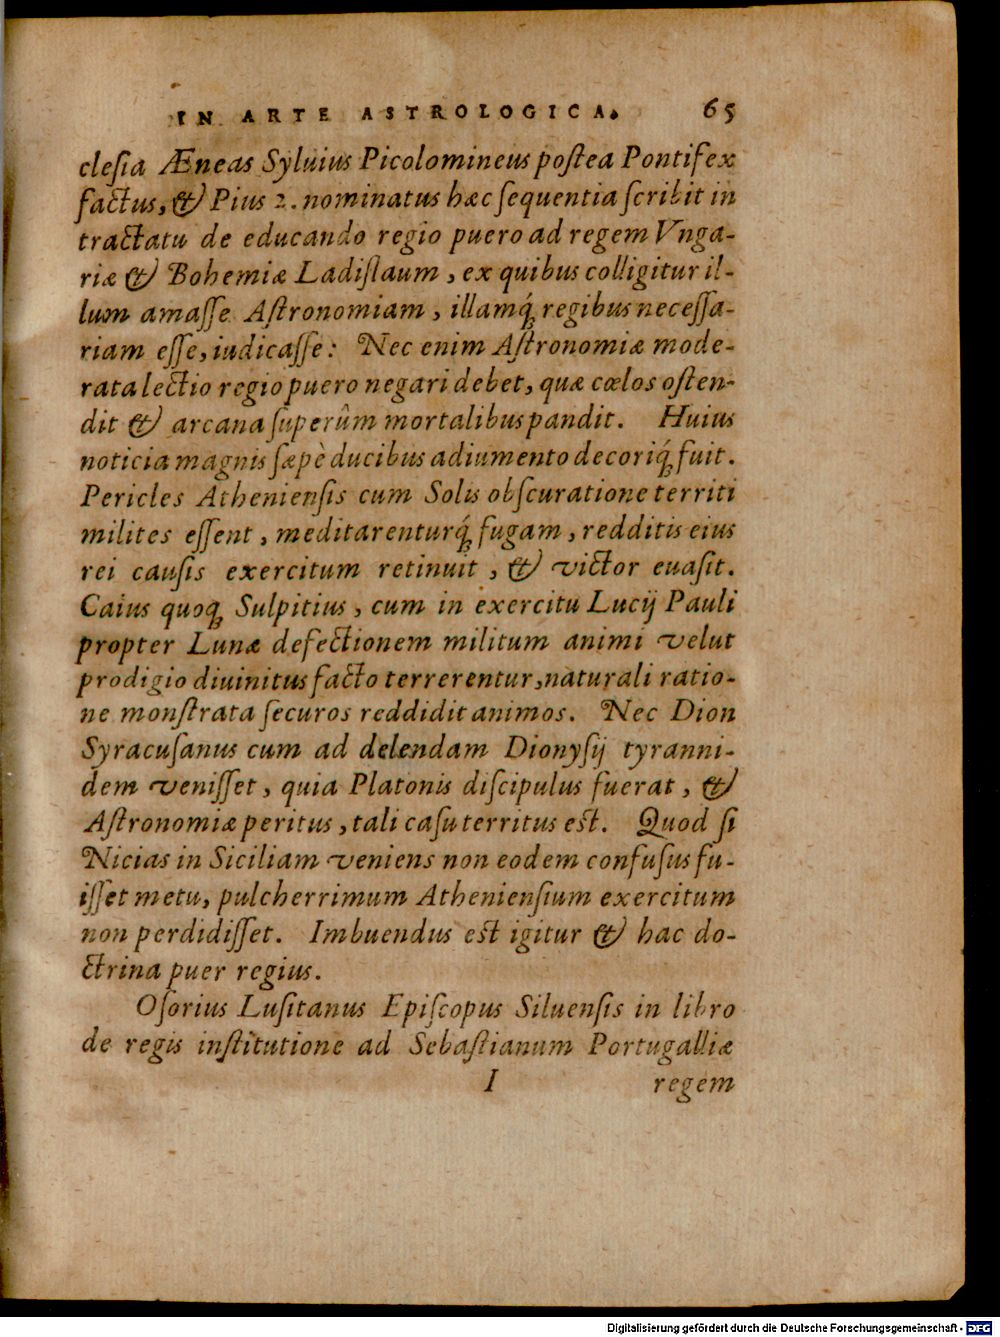 IN ARTE ASTROLOGICA. 65
cleſia Æneas Syluius Picolomineus poſtea Pontifex
factus, & Pius 2. nominatus hæc ſequentia ſcribit in
tractatu de educando regio puero ad regem Vnga-
riæ & Bohemiæ Ladiſlaum, ex quibus colligitur il-
lum amaſſe Aſtronomiam, illamq́; regibus neceſſa-
riam eſſe, iudicaſſe: Nec enim Aſtronomiæ mode-
rata lectio regio puero negari debet, quæ cœlos oſten-
dit & arcana ſuperûm mortalibus pandit. Huius
noticia magnis ſæpè ducibus adiumento decoriq́; fuit.
Pericles Athenienſis cum Solis obſcuratione territi
milites eſſent, meditarenturq́; fugam, redditis eius
rei cauſis exercitum retinuit, & victor euaſit.
Caius quoq; Sulpitius, cum in exercitu Lucij Pauli
propter Lunæ defectionem militum animi velut
prodigio diuinitus facto terrerentur, naturali ratio-
ne monſtrata ſecuros reddidit animos. Nec Dion
Syracuſanus cum ad delendam Dionyſij tyranni-
dem veniſſet, quia Platonis diſcipulus fuerat, &
Aſtronomiæ peritus, tali caſu territus eſt. Quod ſi
Nicias in Siciliam veniens non eodem confuſus fu-
iſſet metu, pulcherrimum Athenienſium exercitum
non perdidiſſet. Imbuendus eſt igitur & hac do-
ctrina puer regius.
Oſorius Luſitanus Epiſcopus Siluenſis in libro
de regis inſtitutione ad Sebaſtianum Portugalliæ
I regem
Digitalisierung gefördert durch die Deutsche Forschungsgemeinschaft - DFG